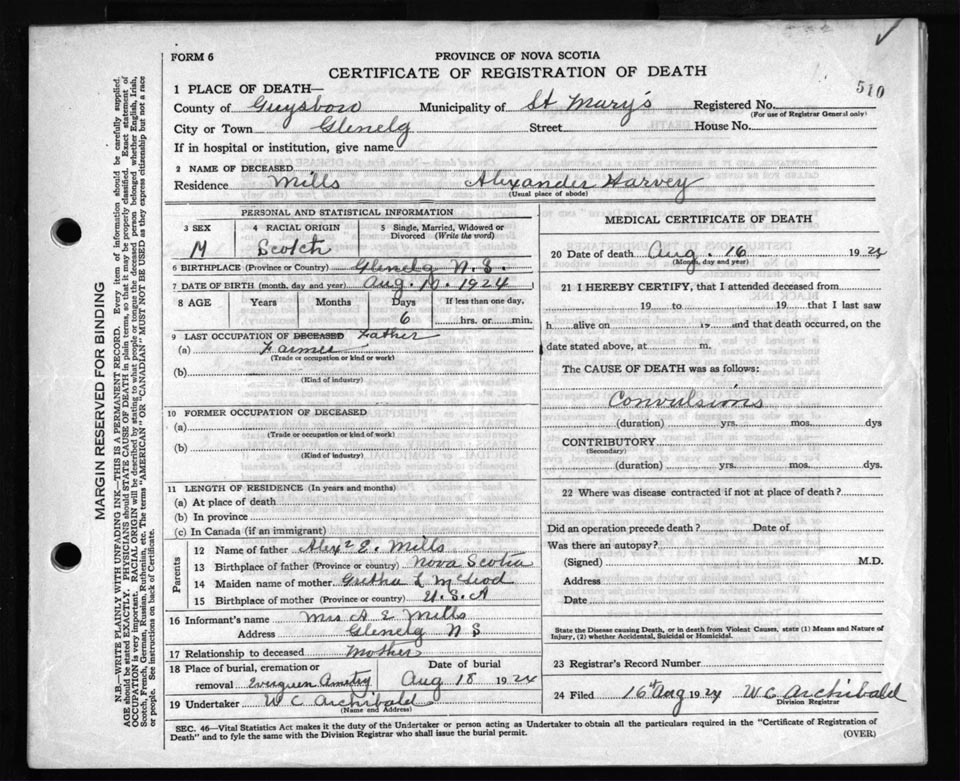 FORM 6
PROVINCE OF NOVA SCOTIA
CERTIFICATE OF REGISTRATION OF DEATH
510
1 PLACE OF DEATH—
County of Guysboro Municipality of St Mary's Registered No.
(For use of Registrar General only)
City or Town Glenelg Street House No.
If in hospital or institution, give name
2 NAME OF DECEASED
Residence Mills Alexander Harvey
(Usual place of abode)
PERSONAL AND STATISTICAL INFORMATION
3 SEX
M
4 RACIAL ORIGIN
Scotch
5 Single, Married, Widowed or Divorced (Write the word)
6 BIRTHPLACE (Province or Country) Glenelg N.S.
7 DATE OF BIRTH (month, day and year) Aug. 10. 1924
8 AGE Years Months Days If less than one day,
6 hrs. or min.
9 LAST OCCUPATION OF DECEASED Father
(a) Farmer
(Trade or occupation or kind or work)
(b)
(Kind of industry)
10 FORMER OCCUPATION OF DECEASED
(a)
(Trade or occupation or kind of work)
(b)
(Kind of industry)
11 LENGTH OF RESIDENCE (In years and months)
(a) At place of death
(b) In province
(c) In Canada (if an immigrant)
Parents
12 Name of father Alexr E. Mills
13 Birthplace of father (Province or country) Nova Scotia
14 Maiden name of mother Gretha L McLeod
15 Birthplace of mother (Province or country) U.S.A
16 Informant's name Mrs A E Mills
Address Glenelg N S
17 Relationship to deceased Mother
18 Place of burial, cremation or removal Evergreen Date of burial Aug 18 1924
19 Undertaker W C Archibald
(Name and Address)
MEDICAL CERTIFICATE OF DEATH
20 Date of death Aug. 16 1924
(Month, day and year)
21 I HEREBY CERTIFY, that I attended deceased from
19 to 19 that I last saw
h alive on 19 and that death occurred, on the
date stated above, at m.
The CAUSE OF DEATH was as follows:
Convulsions
(duration) yrs. mos. dys
CONTRIBUTORY
(Secondary)
(duration) yrs. mos. dys.
22 Where was disease contracted if not at place of death?
Did an operation precede death? Date of
Was there an autopsy?
(Signed) M.D.
Address
Date
State the Disease causing Death, or in death from Violent Causes, state (1) Means and Nature of Injury, (2) whether Accidental, Suicidal or Homicidal.
23 Registrar's Record Number
24 Filed 16th Aug 1924 W C Archibald
Division Registrar
SEC. 46—Vital Statistics Act makes it the duty of the Undertaker or person acting as Undertaker to obtain all the particulars required in the "Certificate of Registration of
Death" and to fyle the same with the Division Registrar who shall issue the burial permit.
(OVER)
MARGIN RESERVED FOR BINDING
N.B.—WRITE PLAINLY WITH UNFADING INK—THIS IS A PERMANENT RECORD. Every item of information should be carefully supplied.
AGE should be stated EXACTLY. PHYSICIANS should STATE CAUSE OF DEATH in plain terms, so that it may be properly classified. Exact statement of
OCCUPATION is very important. RACIAL ORIGIN will be described by stating to what people or tongue the deceased person belonged whether English, Irish,
Scotch, French, German, Russian, Ruthenian, etc. The terms "AMERICAN" OR "CANADIAN" MUST NOT BE USED as they express citizenship but not a race
or people. See instructions on back of Certificate.